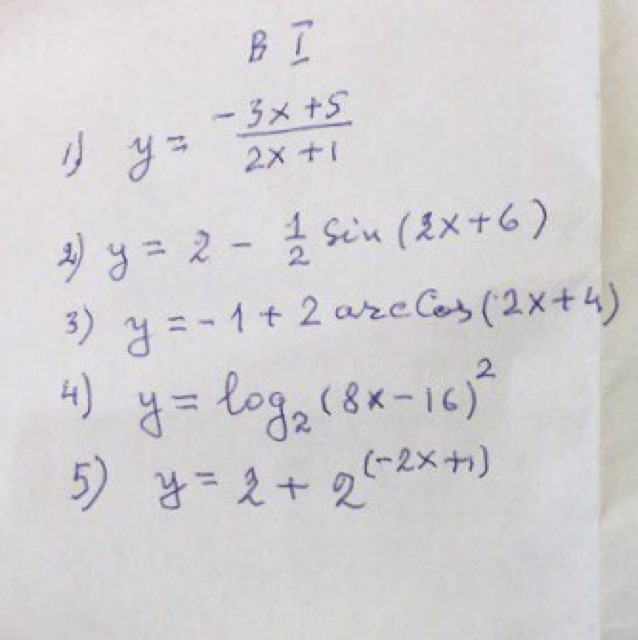 В I
1) y = \frac{-3x+5}{2x+1}
2) y = 2 - \frac{1}{2} sin (2x+6)
3) y = -1 + 2 arccos (2x+4)
4) y = log_2 (8x-16)^2
5) y = 2 + 2^{(-2x+1)}